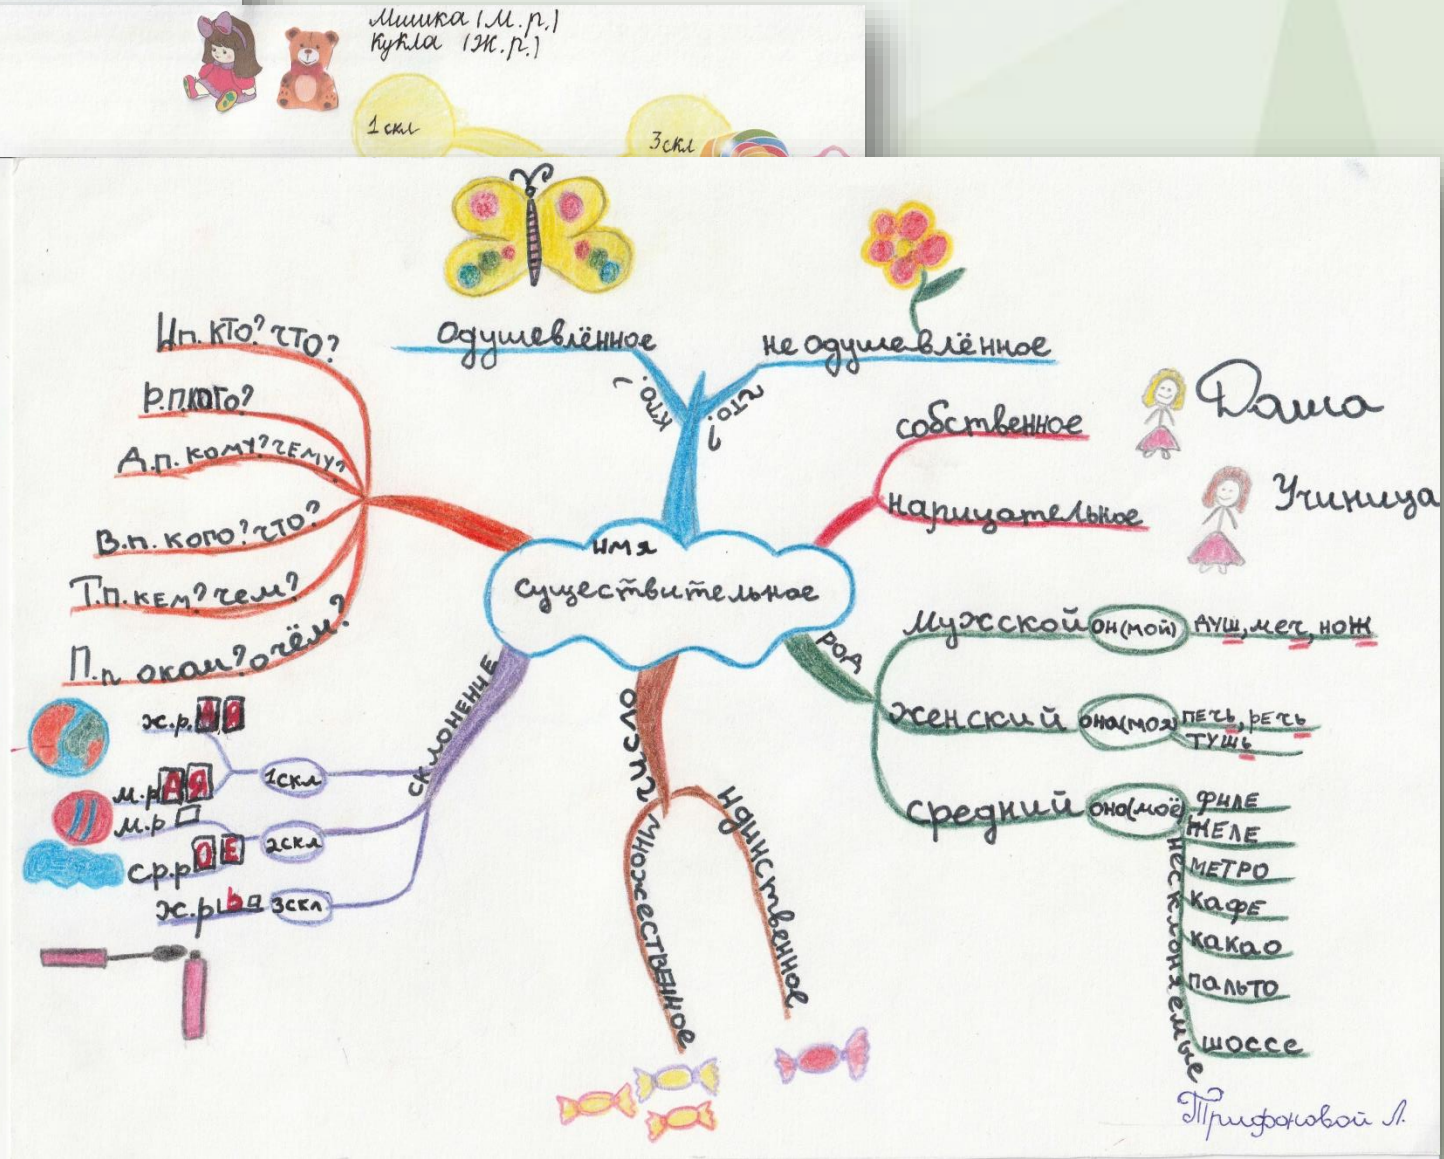 Мишка (м.р.)
Кукла (ж.р.)
1 скл
3 скл
одушевлённое
не одушевлённое
кто?
что?
И.п. кто? что?
Р.п. кого?
Д.п. кому? чему?
В.п. кого? что?
Т.п. кем? чем?
П.п о ком? о чём?
собственное
Даша
нарицательное
Учиница
имя
существительное
род
мужской он(мой) душ, меч, нож
женский она(моя) печь, речь
тушь
средний оно(моё) филе
желе
метро
кафе
какао
пальто
шоссе
несклоняемые
склонение
ж.р. А Я
м.р А Я 1скл
м.р
ср.р О Е 2скл
ж.р ь 3скл
число
множественное
единственное
Трифоновой Л.